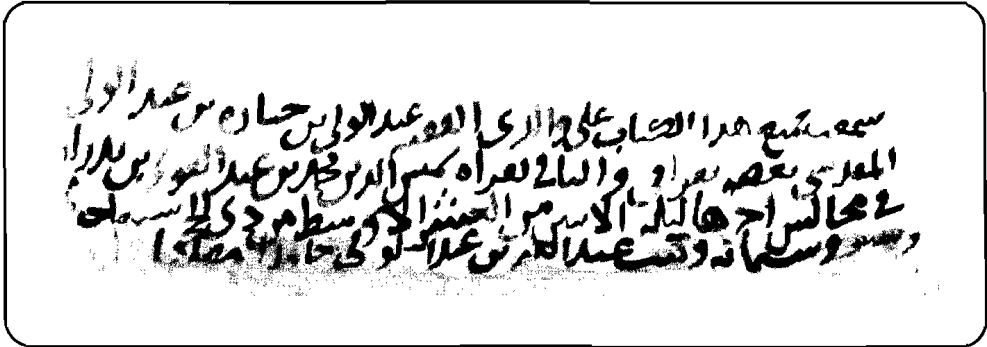 سمع جميع هذا الكتاب على والدي الفقيه عبد الولي بن جبارة بن عبد الولي
المقدسي بعضه بقراءتي والباقي بقراءة شمس الدين محمد بن عبد القوي بن بدران
في مجالس آخرها ليلة الاثنين من العشر الأوسط من جمادى
وستمائة وكتب عبد الله بن عبد الولي حامدا مصليا